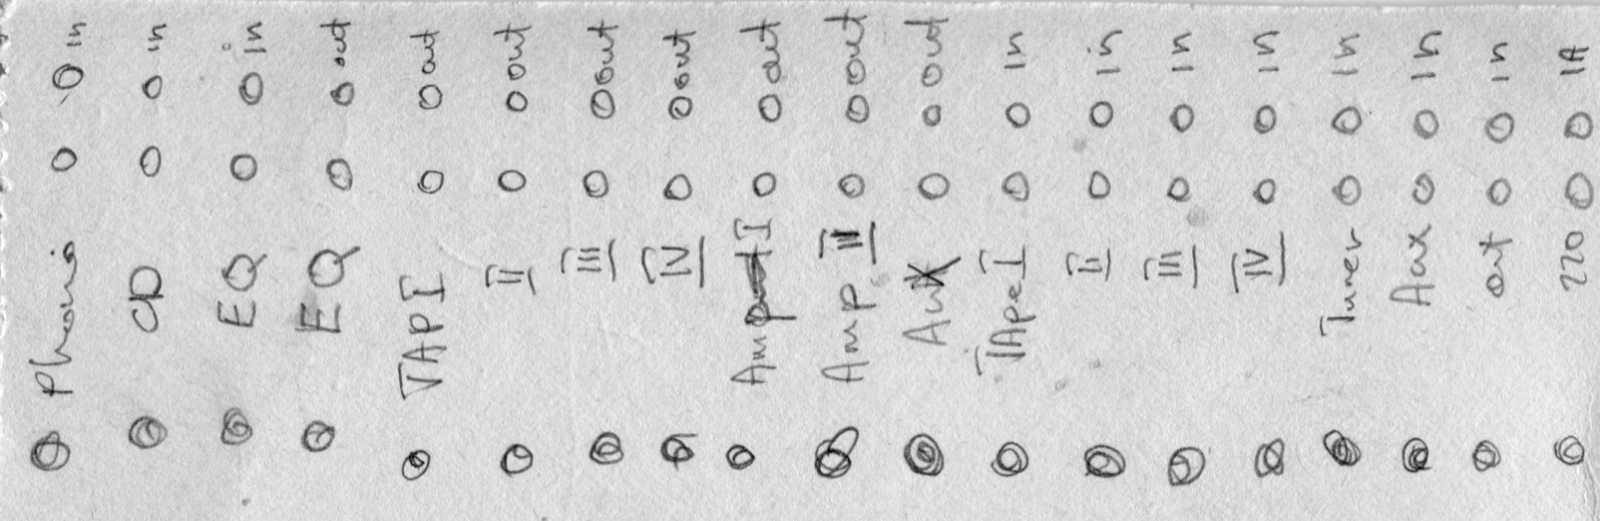 Phono in
CD in
EQ in
EQ out
TAP I out
II out
III out
IV out
Amp I out
Amp II out
Aux out
TApe I in
II in
III in
IV in
Tuner in
Aux in
out in
220 IA